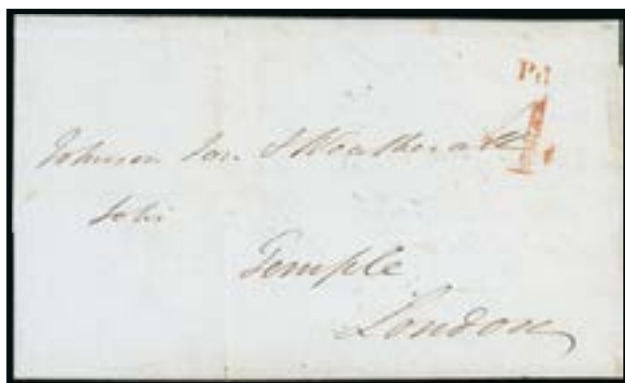 Pd
Johnson Son & Weatherall
Solrs
Temple
London